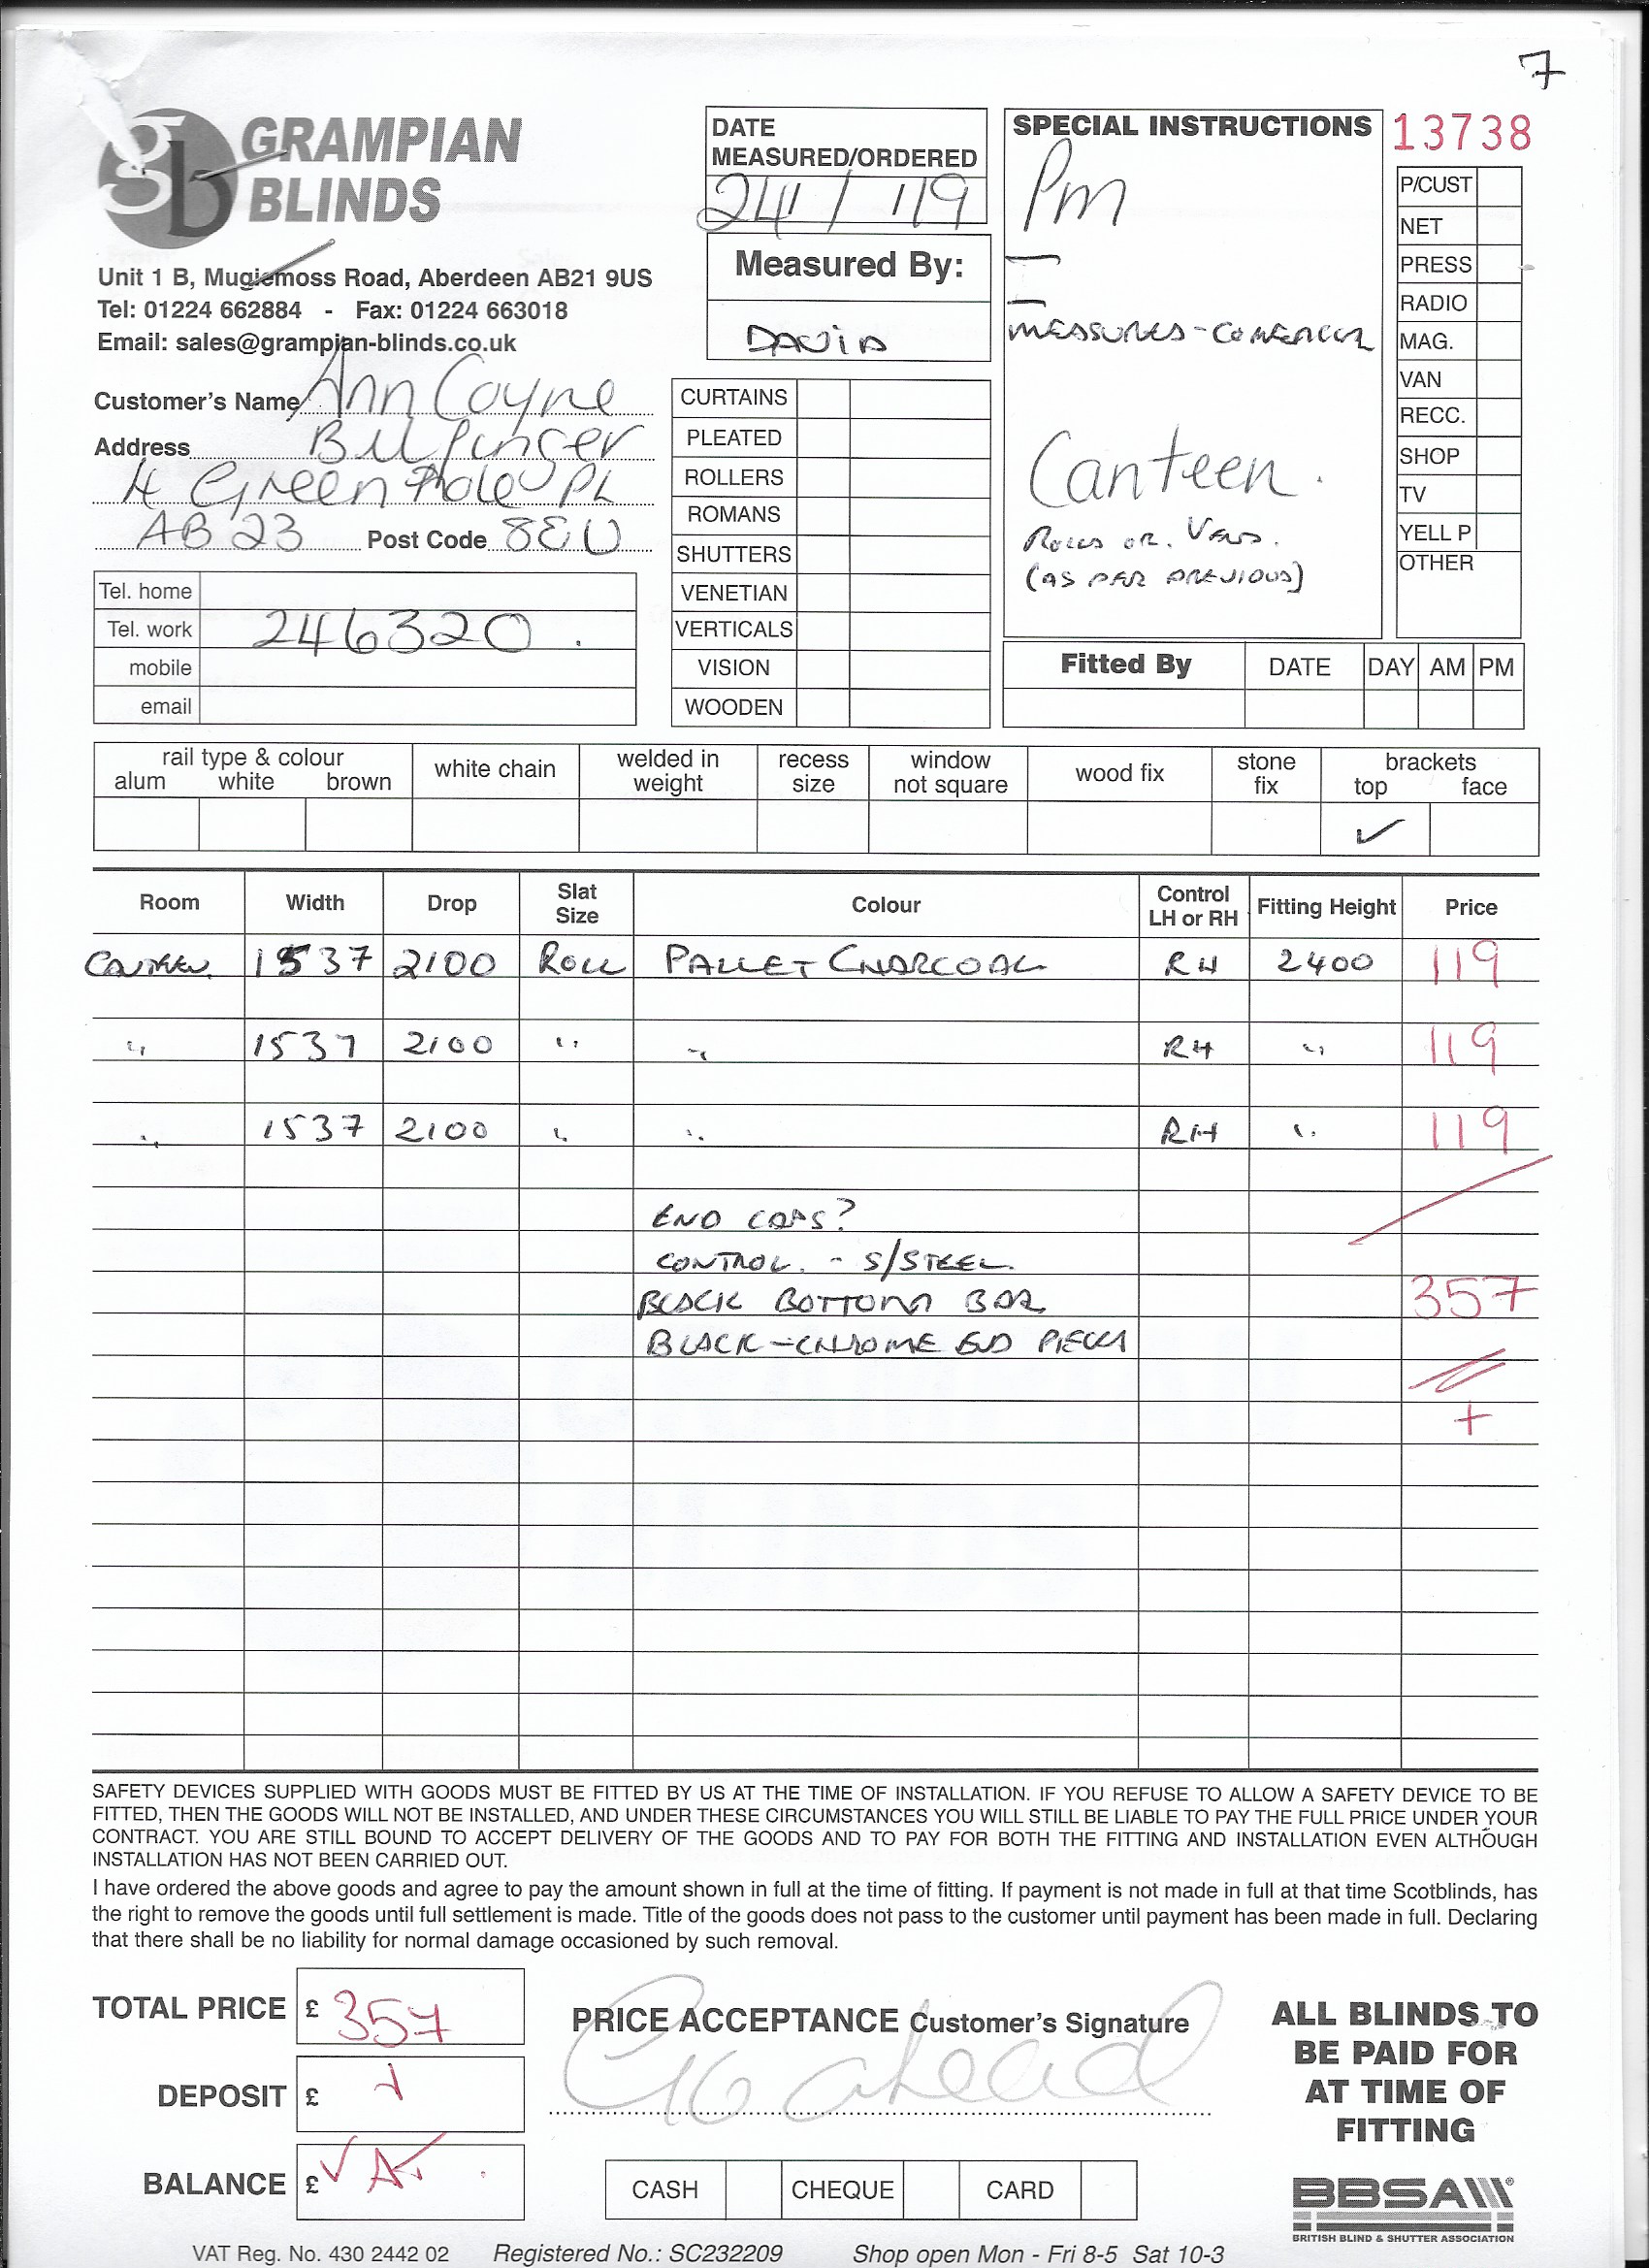 7
GRAMPIAN
BLINDS
Unit 1 B, Mugiemoss Road, Aberdeen AB21 9US
Tel: 01224 662884 - Fax: 01224 663018
Email: sales@grampian-blinds.co.uk
DATE
MEASURED/ORDERED
24/1/19
Measured By:
DAVID
SPECIAL INSTRUCTIONS
Pm
MEASURES -
Canteen.
ROLLS OR. VENS.
(AS PER PREVIOUS)
13738
P/CUST
NET
PRESS
RADIO
MAG.
VAN
RECC.
SHOP
TV
YELL P
OTHER
Customer's Name Ann Coyne
Address Bilfinger
4 Greenhole PL
AB23 Post Code 8EU
Tel. home
Tel. work 246320.
mobile
email
CURTAINS
PLEATED
ROLLERS
ROMANS
SHUTTERS
VENETIAN
VERTICALS
VISION
WOODEN
Fitted By DATE DAY AM PM
rail type & colour
alum white brown
white chain
welded in weight
recess size
window not square
wood fix
stone fix
brackets
top face
✓
Room Width Drop Slat Size Colour Control LH or RH Fitting Height Price
CANTEEN 1537 2100 ROLL PALLET CHARCOAL RH 2400 119
" 1537 2100 " " RH " 119
" 1537 2100 " " RH " 119
END CAPS?
CONTROL. - S/STEEL
BLACK BOTTOM BAR 357
BLACK-CHROME END PIECES
+
SAFETY DEVICES SUPPLIED WITH GOODS MUST BE FITTED BY US AT THE TIME OF INSTALLATION. IF YOU REFUSE TO ALLOW A SAFETY DEVICE TO BE
FITTED, THEN THE GOODS WILL NOT BE INSTALLED, AND UNDER THESE CIRCUMSTANCES YOU WILL STILL BE LIABLE TO PAY THE FULL PRICE UNDER YOUR
CONTRACT. YOU ARE STILL BOUND TO ACCEPT DELIVERY OF THE GOODS AND TO PAY FOR BOTH THE FITTING AND INSTALLATION EVEN ALTHOUGH
INSTALLATION HAS NOT BEEN CARRIED OUT.
I have ordered the above goods and agree to pay the amount shown in full at the time of fitting. If payment is not made in full at that time Scotblinds, has
the right to remove the goods until full settlement is made. Title of the goods does not pass to the customer until payment has been made in full. Declaring
that there shall be no liability for normal damage occasioned by such removal.
TOTAL PRICE £ 357
DEPOSIT £ +
BALANCE £ VAT
PRICE ACCEPTANCE Customer's Signature
Go ahead
CASH CHEQUE CARD
ALL BLINDS TO
BE PAID FOR
AT TIME OF
FITTING
BBSA
BRITISH BLIND & SHUTTER ASSOCIATION
VAT Reg. No. 430 2442 02 Registered No.: SC232209 Shop open Mon - Fri 8-5 Sat 10-3